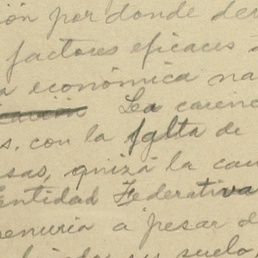 ión por donde de
factores eficaces
a económica na
La caren
s. con la falta de
sas, quizá la cau
Entidad Federativa
penuria a pesar d
su suelo,